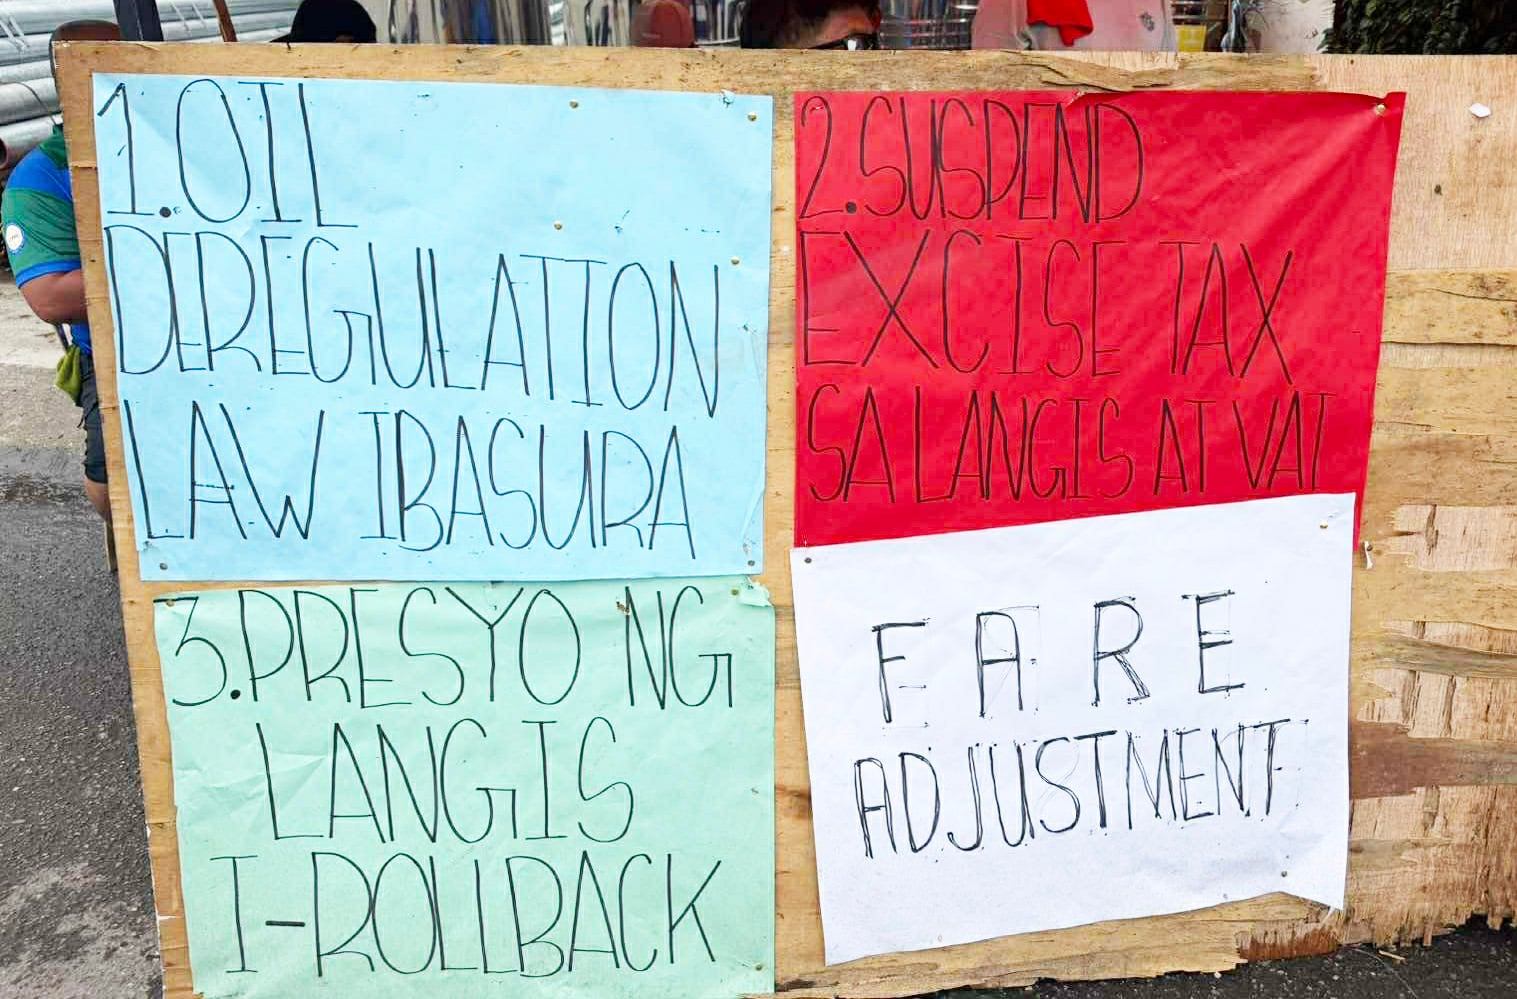 1.OIL
DEREGULATION
LAW IBASURA
2.SUSPEND
EXCISE TAX
SA LANGIS AT VAT
3.PRESYO NG
LANGIS
I-ROLLBACK
FARE
ADJUSTMENT